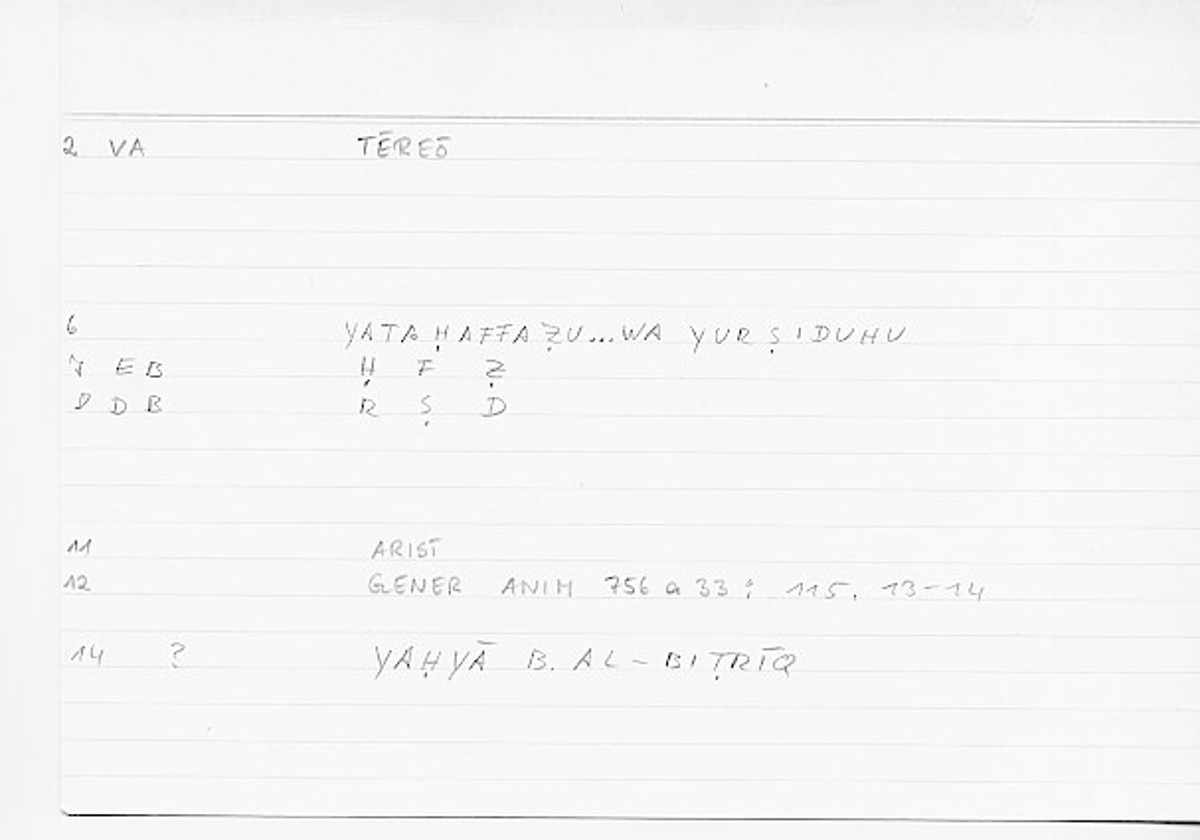 2 VA TĒREŌ
6 YATAḤAFFAẒU...WA YURṢIDUHU
7 EB Ḥ F Ẓ
8 DB R Ṣ D
11 ARIST
12 GENER ANIM 756 a 33 : 115. 13-14
14 ? YAḤYĀ B. AL-BIṬRĪQ